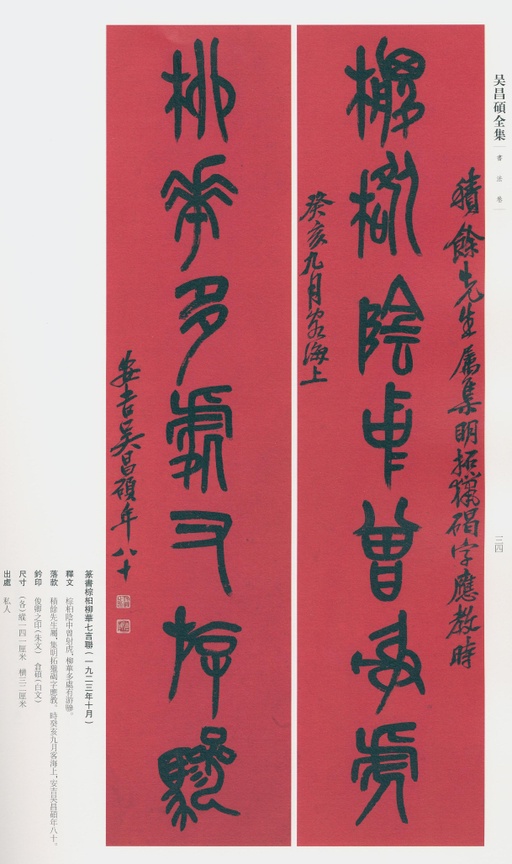 吴昌碩全集
書法卷
三四
積餘先生属集明拓獵碣字應教時
棕柏陰中曾射虎
癸亥九月客海上
柳華多處有游驂
安吉吴昌碩年八十
篆書棕柏柳華七言聯（一九二三年十月）
釋文 棕柏陰中曾射虎，柳華多處有游驂。
落款 積餘先生屬，集明拓獵碣字應教。時癸亥九月客海上，安吉吴昌碩年八十。
鈐印 俊卿之印（朱文） 倉碩（白文）
尺寸 （各）縱一四一厘米 橫三二厘米
出處 私人